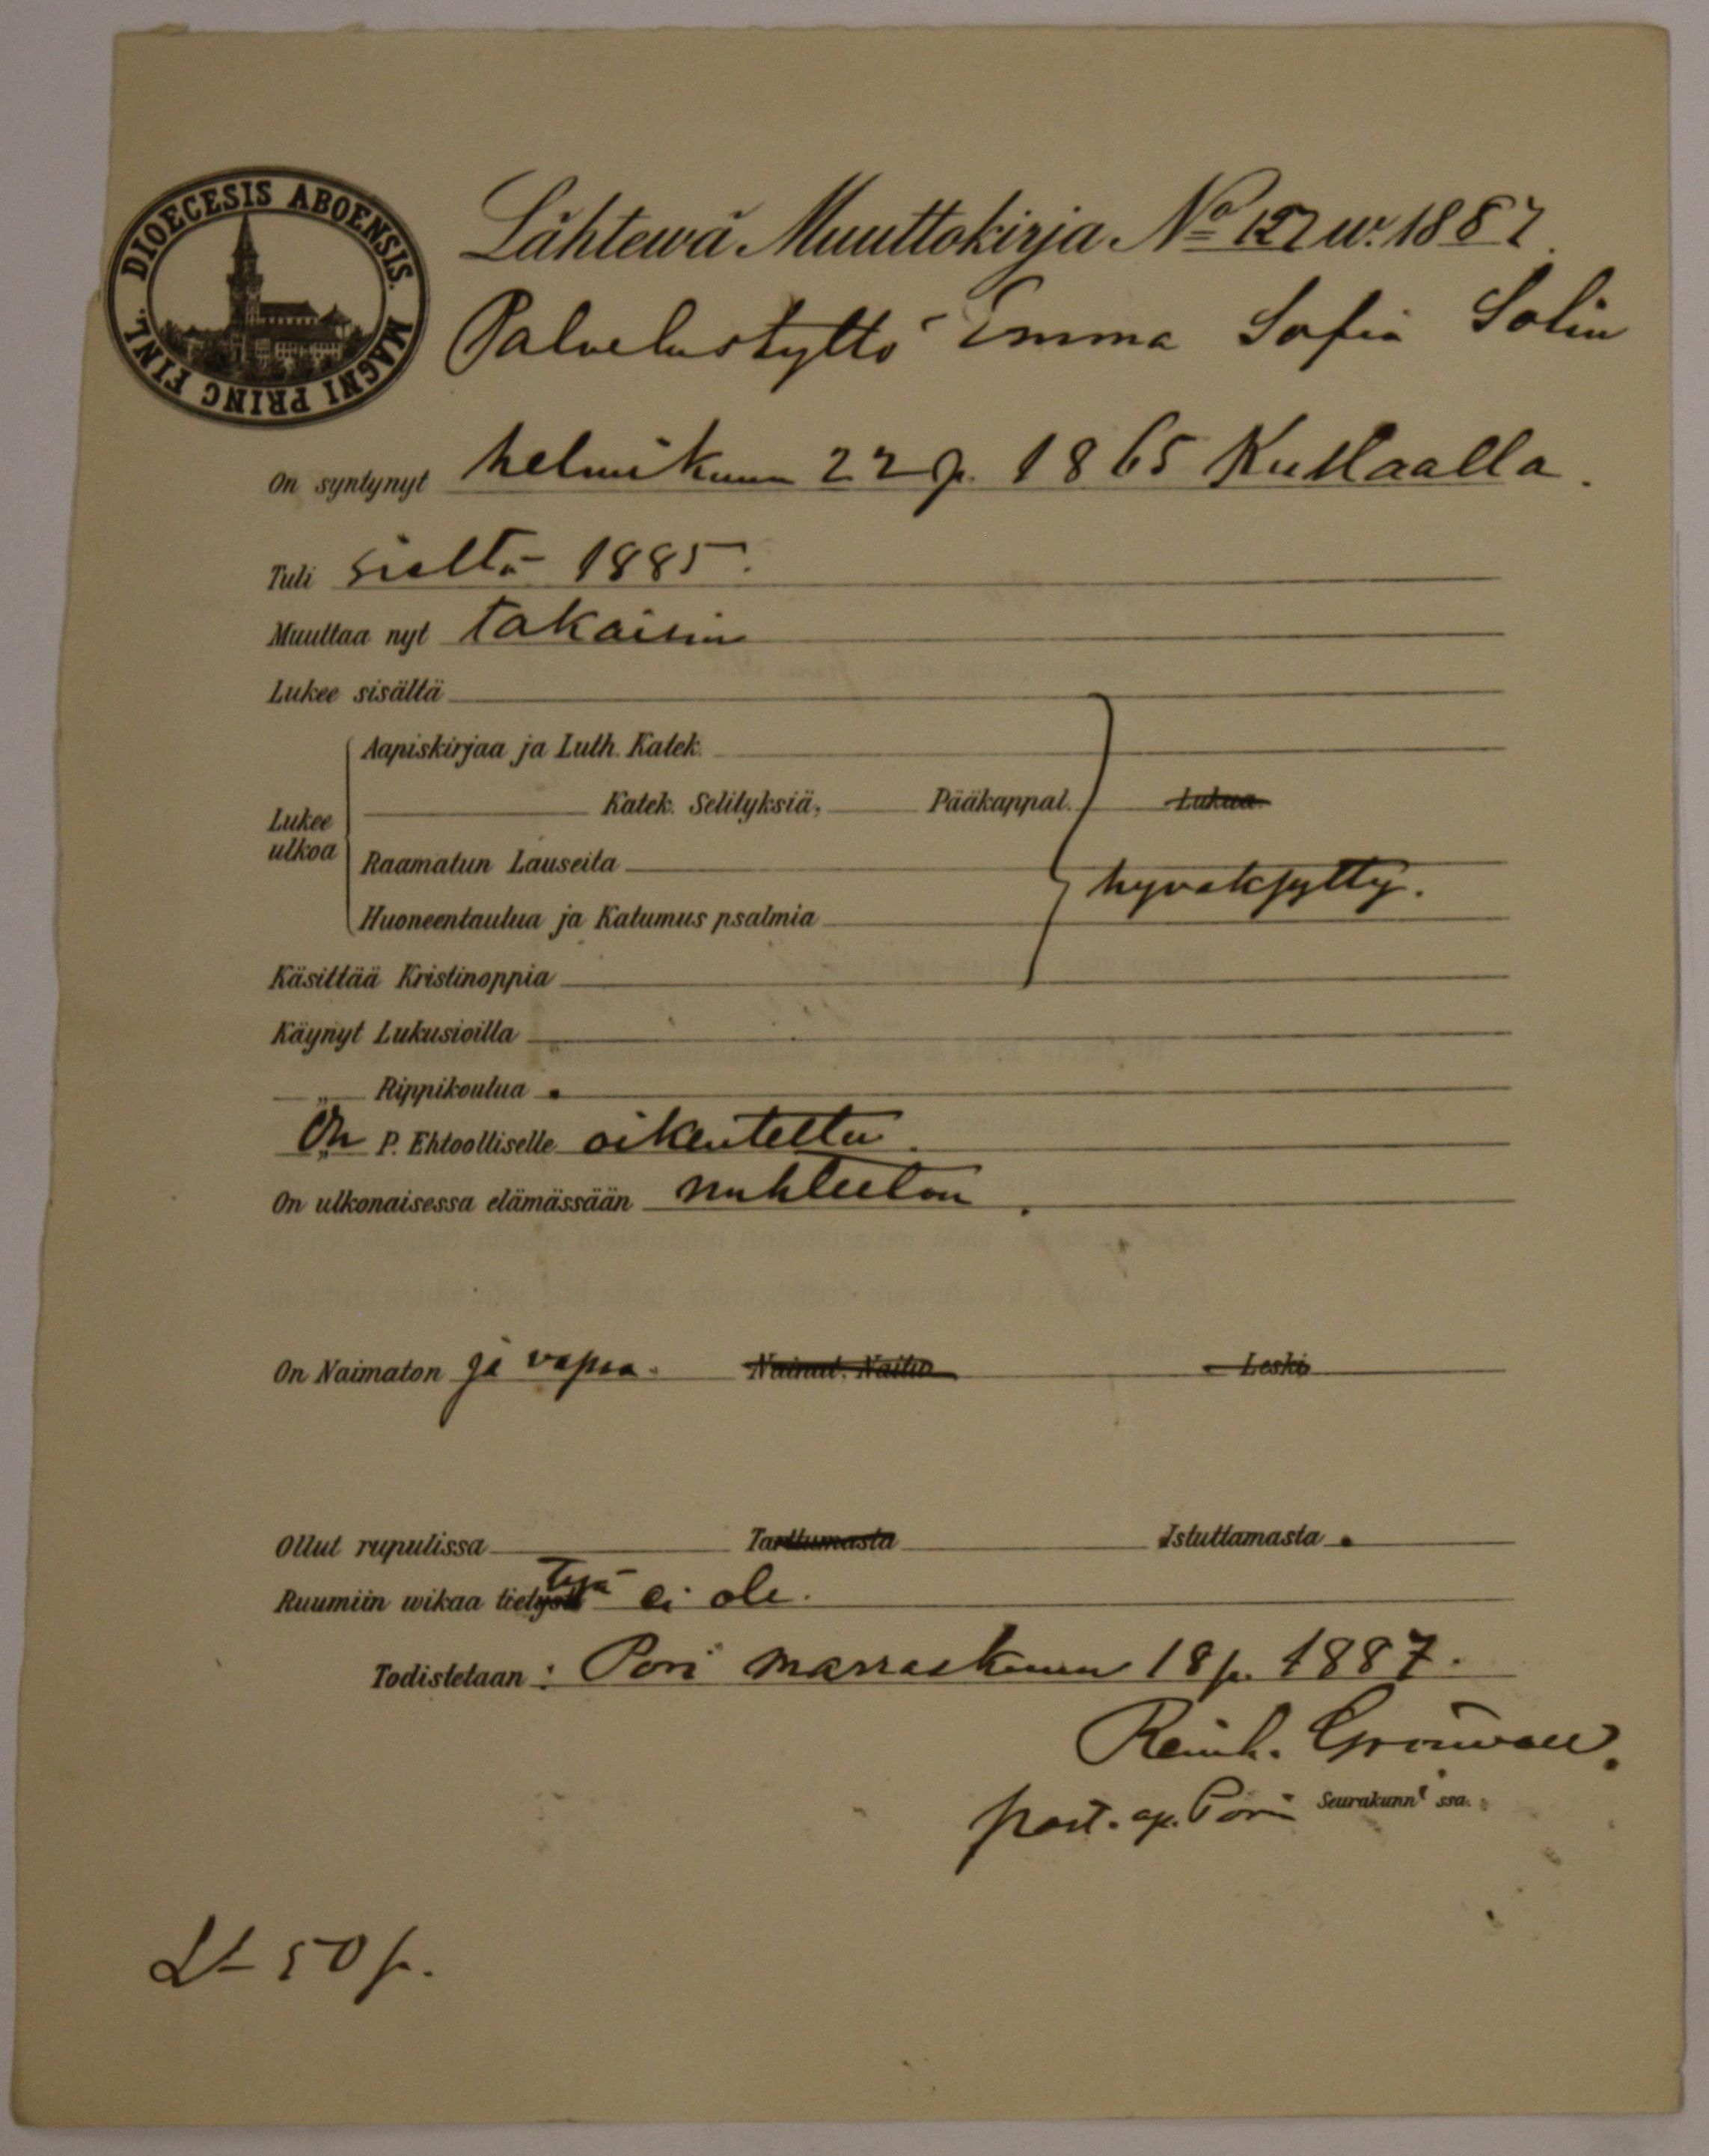 DIOECESIS ABOENSIS. MAGNI PRINC FINL.
Lähtewä Muuttokirja No 127 w. 1887.
Palvelustyttö Emma Sofia Solin
On syntynyt helmikuun 22 p. 1865 Kullaalla.
Tuli sieltä 1885.
Muuttaa nyt takaisin
Lukee sisältä
Aapiskirjaa ja Luth. Katek.
Katek. Selityksiä, Pääkappal. Lukua.
Lukee ulkoa
Raamatun Lauseita
hyväksytty.
Huoneentaulua ja Katumus psalmia
Käsittää Kristinoppia
Käynyt Lukusioilla
„ Rippikoulua
On „ P. Ehtoolliselle oikeutettu.
On ulkonaisessa elämässään nuhteeton.
On Naimaton ja vapaa. Nainut, Naitu Leski
Ollut rupulissa Tarttumasta Istuttamasta
Ruumiin wikaa tietysti tyjä ei ole.
Todistetaan: Pori marraskuun 18 p. 1887.
Reinh. Grönvall.
past. ap. Pori Seurakunn ssa.
50 p.